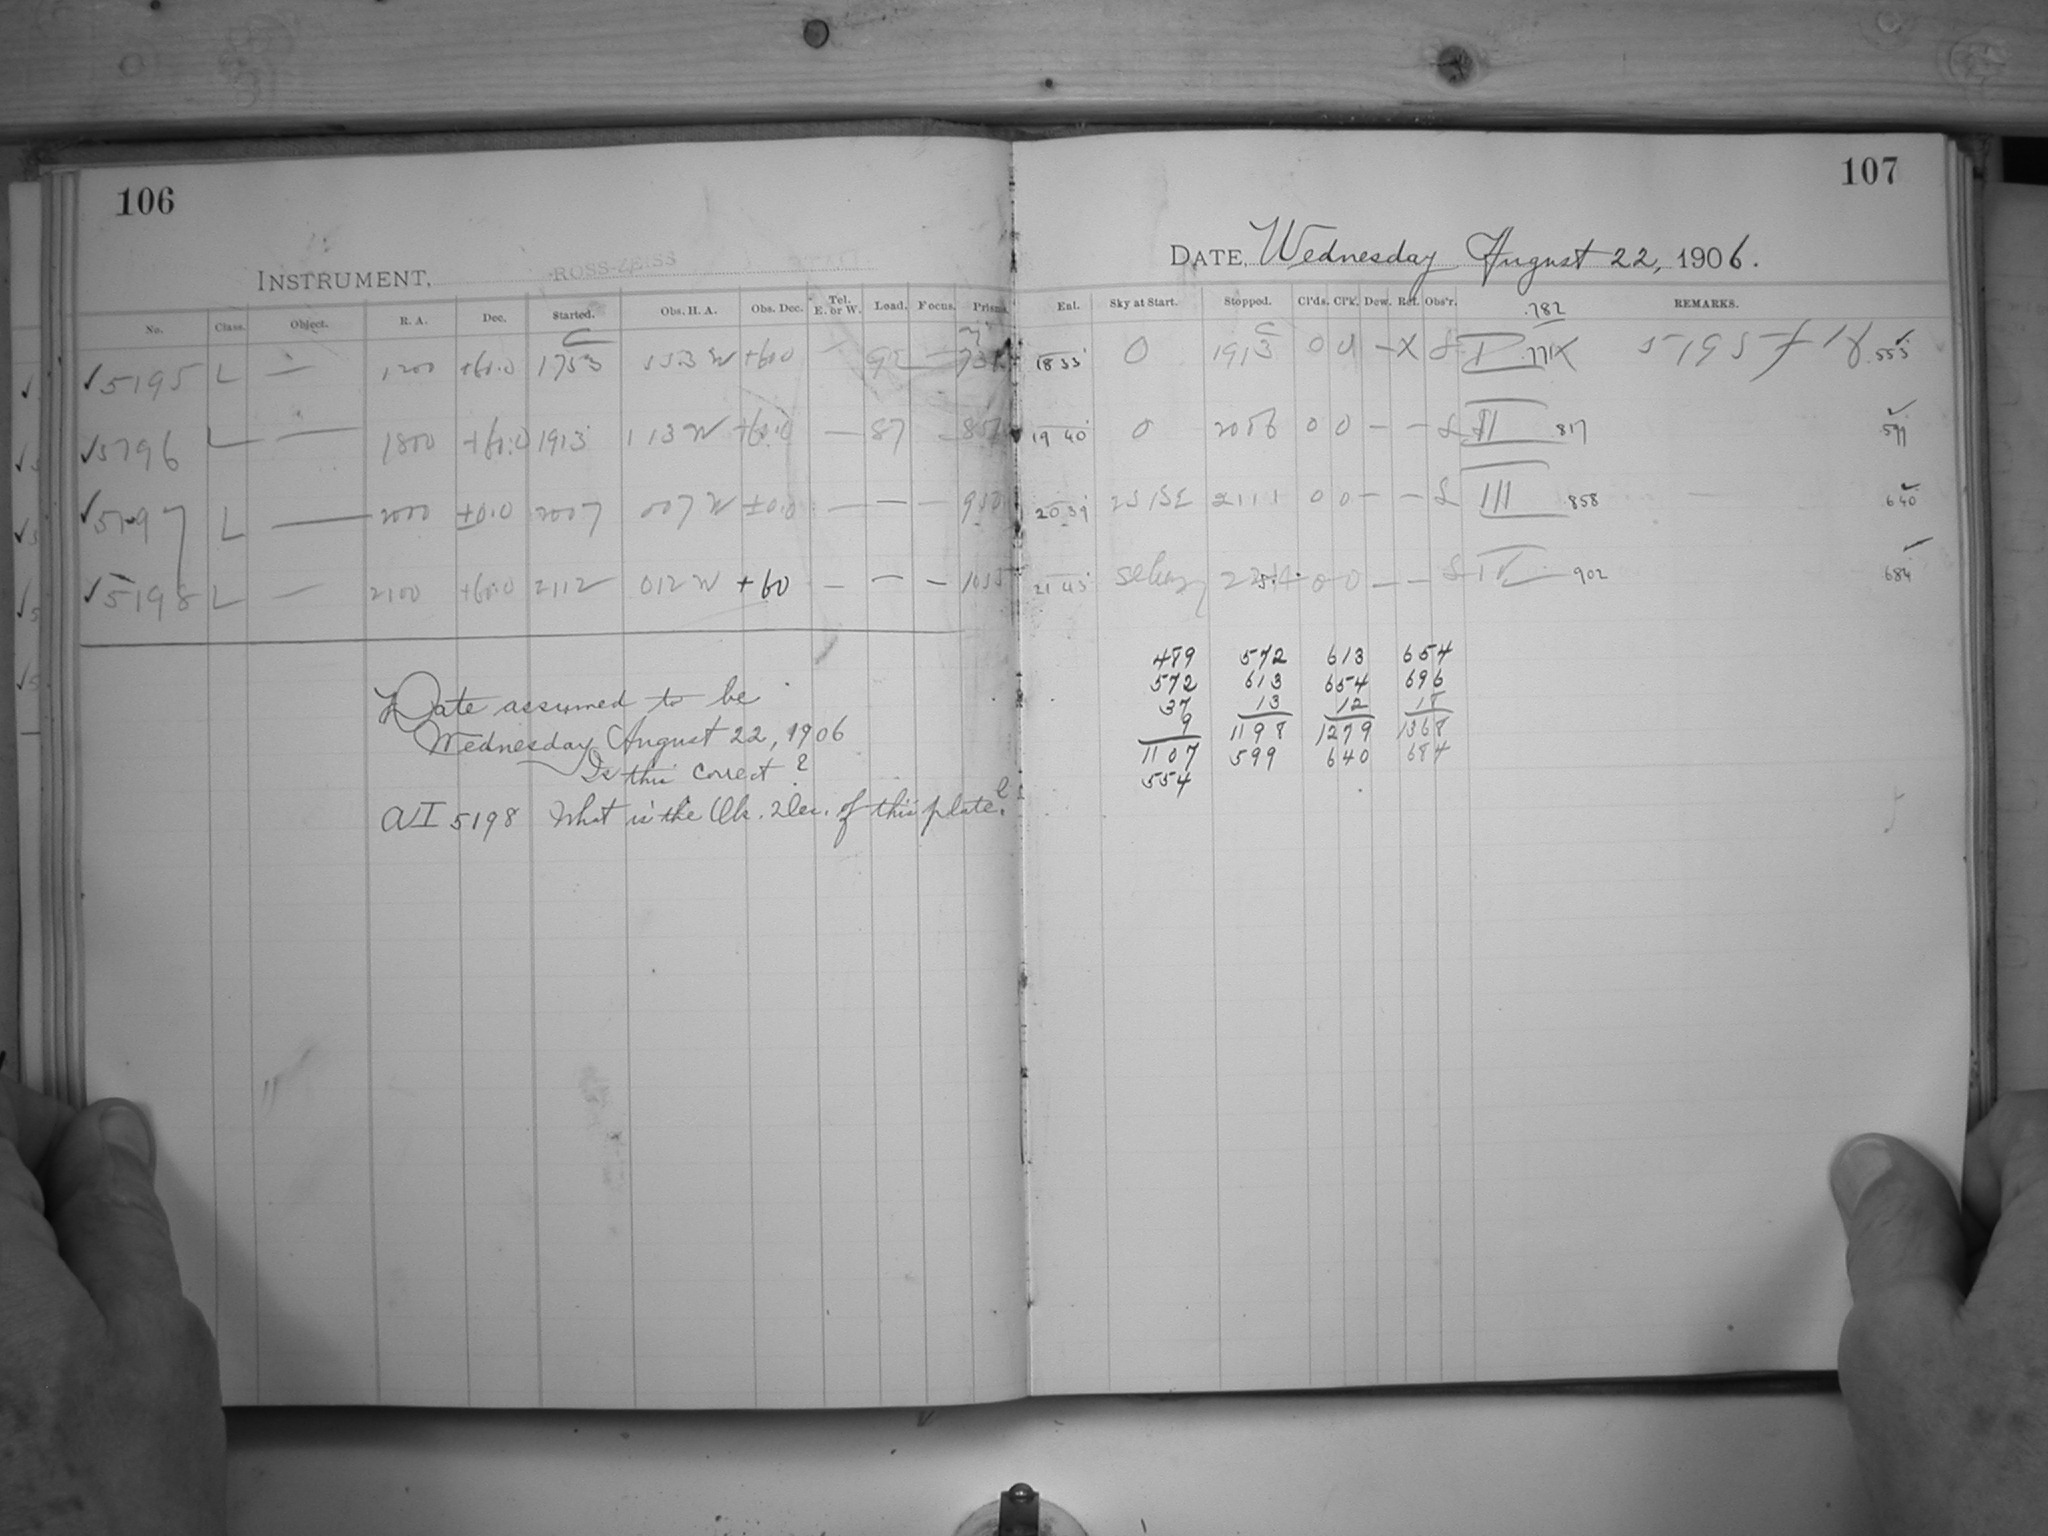 106
INSTRUMENT, ROSS-ZEISS
No. Class. Object. R. A. Dec. Started. Obs. H. A. Obs. Dec. Tel. E. or W. Load. Focus. Prisms.
✓5195 L — 1200 +60.0 1753 153 W +60.0 —
✓5796 L — 1800 +60.0 1913 113 W +60.0 — 87 —
✓5197 L — 2000 ±0.0 2007 007 W ±0.0 — — — 950
✓5198 L — 2100 +60.0 2112 012 W +60 — — — 1055
Date assumed to be
Wednesday August 22, 1906
Is this correct?
5198 What is the Ob. Dec. of this plate?
107
DATE, Wednesday August 22, 1906.
Ent. Sky at Start. Stopped. Cl'ds. Cl'k. Dew. Ref. Obs'r. .782 REMARKS.
18 33 0 1913 0 0 — X I 5195
19 40 0 2006 0 0 — — II 817 599
20 39 2111 0 0 — — III 858 640
21 43 0 0 — — IV 902 684
489 572 613 654
572 613 654 696
37 13 12 18
9 1198 1279 1368
1107 599 640 684
554